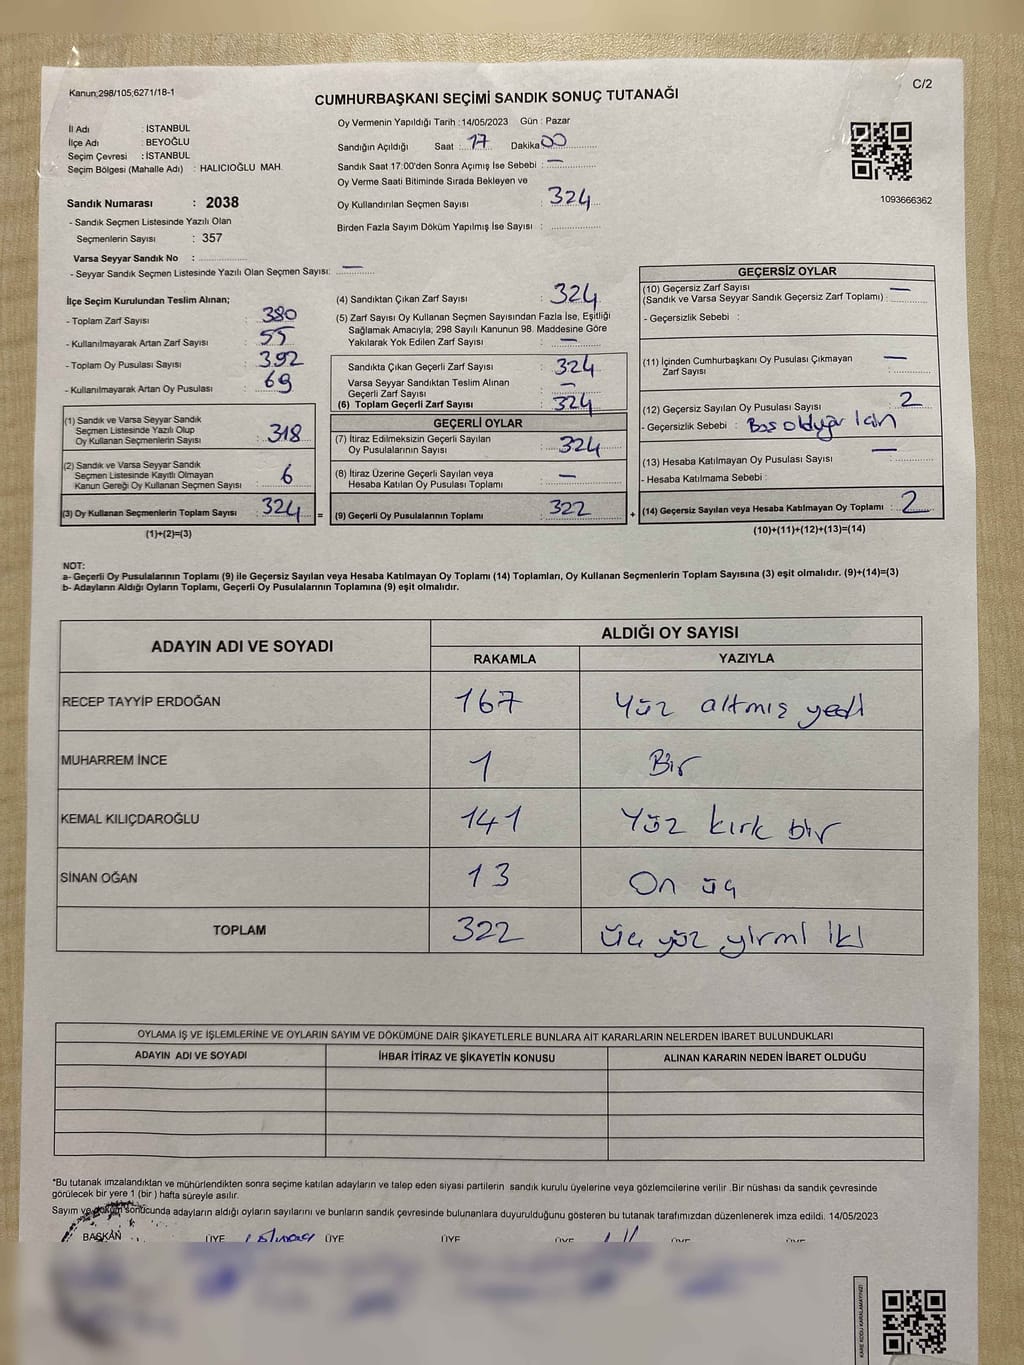 Kanun;298/105;6271/18-1
C/2
CUMHURBAŞKANI SEÇİMİ SANDIK SONUÇ TUTANAĞI
İl Adı : İSTANBUL
İlçe Adı : BEYOĞLU
Seçim Çevresi : İSTANBUL
Seçim Bölgesi (Mahalle Adı) : HALICIOĞLU MAH.
Sandık Numarası : 2038
- Sandık Seçmen Listesinde Yazılı Olan
Seçmenlerin Sayısı : 357
Varsa Seyyar Sandık No :
- Seyyar Sandık Seçmen Listesinde Yazılı Olan Seçmen Sayısı: —
Oy Vermenin Yapıldığı Tarih : 14/05/2023 Gün : Pazar
Sandığın Açıldığı Saat : 17 Dakika 00
Sandık Saat 17:00'den Sonra Açımış İse Sebebi : —
Oy Verme Saati Bitiminde Sırada Bekleyen ve
Oy Kullandırılan Seçmen Sayısı : 324
Birden Fazla Sayım Döküm Yapılmış İse Sayısı :
1093666362
İlçe Seçim Kurulundan Teslim Alınan;
- Toplam Zarf Sayısı : 380
- Kullanılmayarak Artan Zarf Sayısı : 55
- Toplam Oy Pusulası Sayısı : 392
- Kullanılmayarak Artan Oy Pusulası : 69
(1) Sandık ve Varsa Seyyar Sandık
Seçmen Listesinde Yazılı Olup
Oy Kullanan Seçmenlerin Sayısı : 318
(2) Sandık ve Varsa Seyyar Sandık
Seçmen Listesinde Kayıtlı Olmayan
Kanun Gereği Oy Kullanan Seçmen Sayısı : 6
(3) Oy Kullanan Seçmenlerin Toplam Sayısı : 324
(1)+(2)=(3)
(4) Sandıktan Çıkan Zarf Sayısı : 324
(5) Zarf Sayısı Oy Kullanan Seçmen Sayısından Fazla İse, Eşitliği
Sağlamak Amacıyla; 298 Sayılı Kanunun 98. Maddesine Göre
Yakılarak Yok Edilen Zarf Sayısı : —
Sandıkta Çıkan Geçerli Zarf Sayısı : 324
Varsa Seyyar Sandıktan Teslim Alınan
Geçerli Zarf Sayısı : —
(6) Toplam Geçerli Zarf Sayısı : 324
GEÇERLİ OYLAR
(7) İtiraz Edilmeksizin Geçerli Sayılan
Oy Pusulalarının Sayısı : 324
(8) İtiraz Üzerine Geçerli Sayılan veya
Hesaba Katılan Oy Pusulası Toplamı : —
= (9) Geçerli Oy Pusulalarının Toplamı : 322
GEÇERSİZ OYLAR
(10) Geçersiz Zarf Sayısı
(Sandık ve Varsa Seyyar Sandık Geçersiz Zarf Toplamı) : —
- Geçersizlik Sebebi :
(11) İçinden Cumhurbaşkanı Oy Pusulası Çıkmayan
Zarf Sayısı : —
(12) Geçersiz Sayılan Oy Pusulası Sayısı : 2
- Geçersizlik Sebebi : Boş olduğu için
(13) Hesaba Katılmayan Oy Pusulası Sayısı : —
- Hesaba Katılmama Sebebi :
+ (14) Geçersiz Sayılan veya Hesaba Katılmayan Oy Toplamı : 2
(10)+(11)+(12)+(13)=(14)
NOT:
a- Geçerli Oy Pusulalarının Toplamı (9) ile Geçersiz Sayılan veya Hesaba Katılmayan Oy Toplamı (14) Toplamları, Oy Kullanan Seçmenlerin Toplam Sayısına (3) eşit olmalıdır. (9)+(14)=(3)
b- Adayların Aldığı Oyların Toplamı, Geçerli Oy Pusulalarının Toplamına (9) eşit olmalıdır.
ADAYIN ADI VE SOYADI
ALDIĞI OY SAYISI
RAKAMLA YAZIYLA
RECEP TAYYİP ERDOĞAN 167 Yüz altmış yedi
MUHARREM İNCE 1 Bir
KEMAL KILIÇDAROĞLU 141 Yüz kırk bir
SİNAN OĞAN 13 On üç
TOPLAM 322 Üç yüz yirmi iki
OYLAMA İŞ VE İŞLEMLERİNE VE OYLARIN SAYIM VE DÖKÜMÜNE DAİR ŞİKAYETLERLE BUNLARA AİT KARARLARIN NELERDEN İBARET BULUNDUKLARI
ADAYIN ADI VE SOYADI İHBAR İTİRAZ VE ŞİKAYETİN KONUSU ALINAN KARARIN NEDEN İBARET OLDUĞU
*Bu tutanak imzalandıktan ve mühürlendikten sonra seçime katılan adayların ve talep eden siyasi partilerin sandık kurulu üyelerine veya gözlemcilerine verilir .Bir nüshası da sandık çevresinde
görülecek bir yere 1 (bir ) hafta süreyle asılır.
Sayım ve döküm sonucunda adayların aldığı oyların sayılarını ve bunların sandık çevresinde bulunanlara duyurulduğunu gösteren bu tutanak tarafımızdan düzenlenerek imza edildi. 14/05/2023
BAŞKAN ÜYE ÜYE ÜYE ÜYE ÜYE ÜYE
KARE KODU KARALAMAYINIZ!